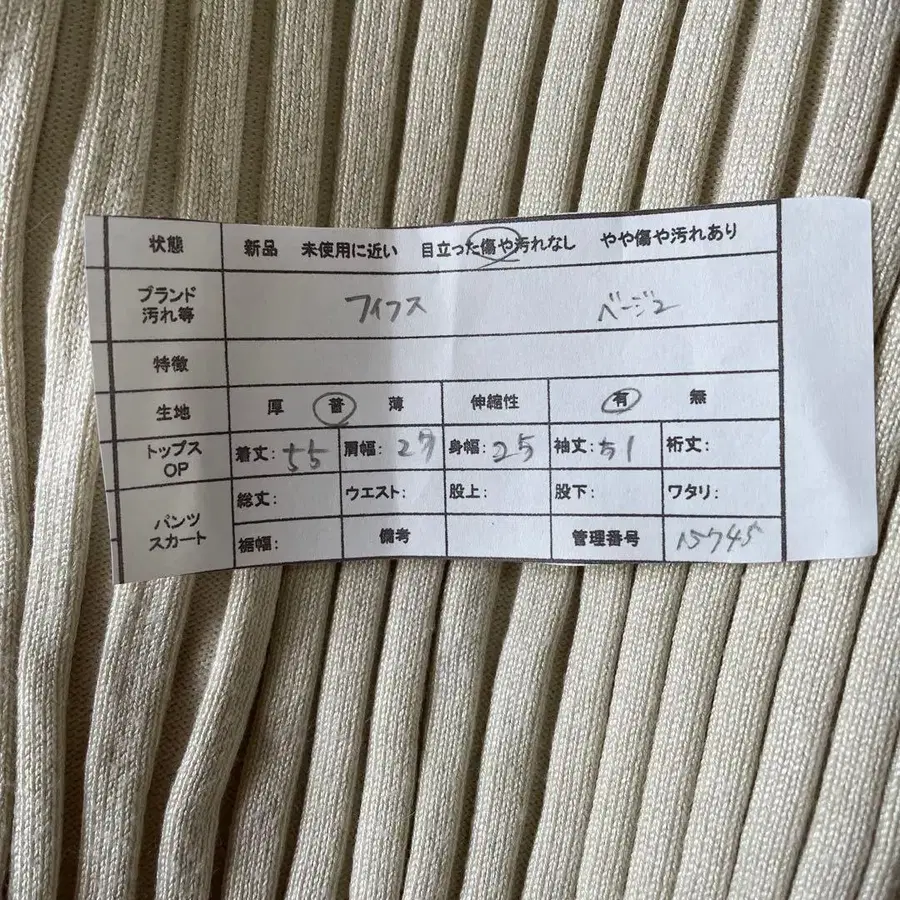 状態 新品 未使用に近い 目立った傷や汚れなし やや傷や汚れあり
ブランド
汚れ等 フィフス ベージュ
特徴
生地 厚 普 薄 伸縮性 有 無
トップス
OP 着丈: 55 肩幅: 27 身幅: 25 袖丈: 51 裄丈:
総丈: ウエスト: 股上: 股下: ワタリ:
パンツ
スカート 裾幅: 備考 管理番号 15745